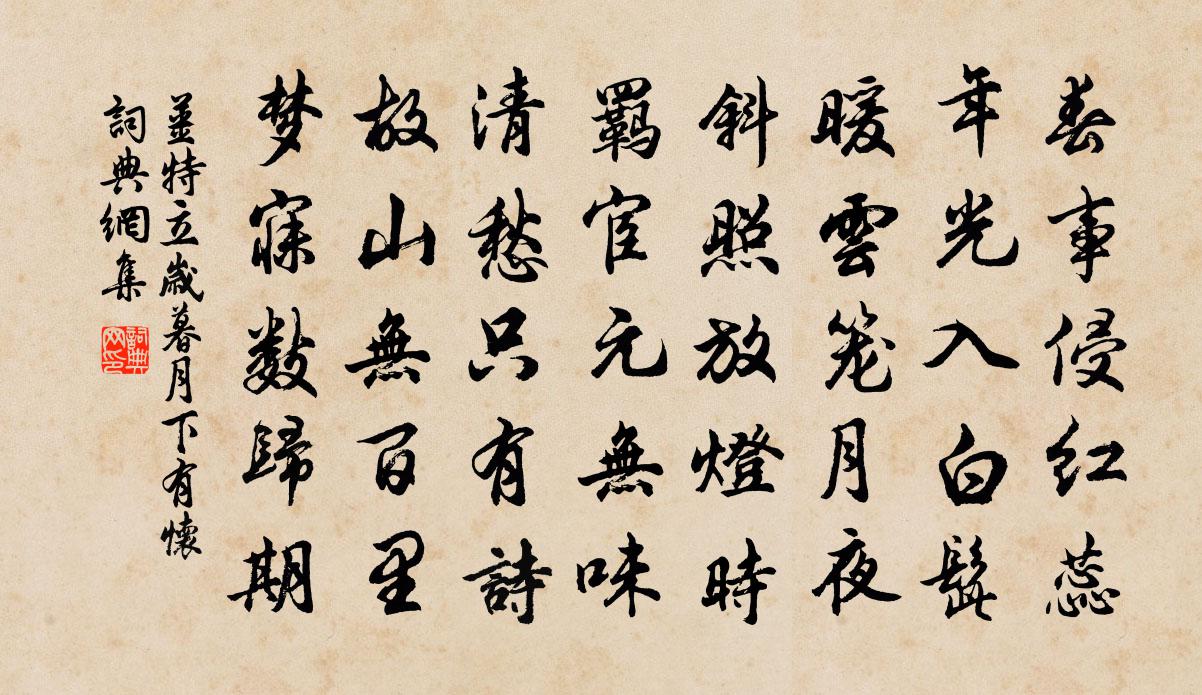 春事侵紅蕊
年光入白髭
暖雲笼月夜
斜照放燈時
羁宦元無味
清愁只有詩
故山無百里
梦寐数歸期
姜特立歲暮月下有懷
詞典網集
詞典网印